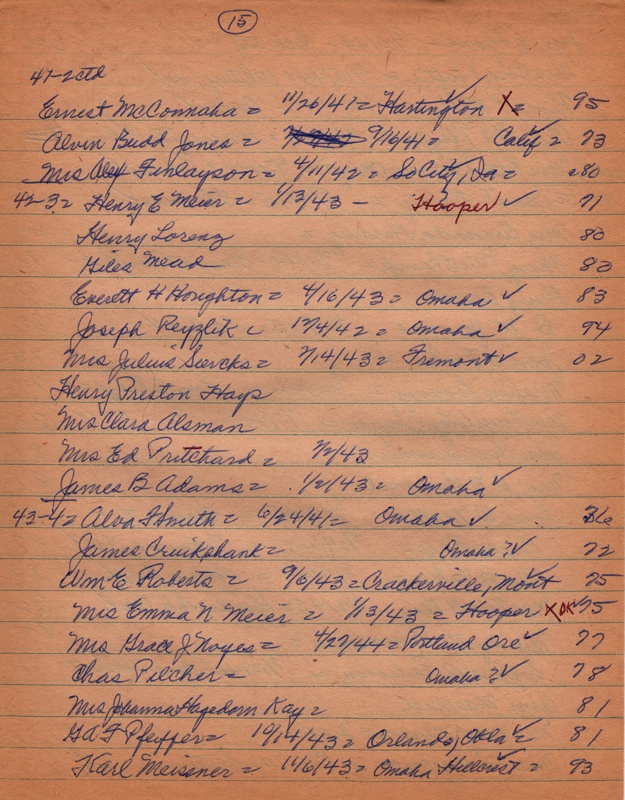 15
41-2 ctd
Ernest McConnaha = 11/26/41 = Hartington ✓ X = 95
Alvin Budd Jones = 9/16/41 = Calif ✓ = 73
Mrs Alex Finlayson = 4/11/42 = So City, Ia = 80
42-3 = Henry E Meier = 1/13/43 - Hooper ✓ 71
Henry Lorenz 80
Giles Mead 80
Everett H Houghton = 4/16/43 = Omaha ✓ 83
Joseph = 12/4/42 = Omaha ✓ 94
Mrs Julius Siercks = 7/14/43 = Fremont ✓ 02
Henry Preston Hays
Mrs Clara Alsman
Mrs Ed Pritchard = /43
James B Adams = 1/2/43 = Omaha ✓
43-4 = Alva F Smith = 6/24/41 = Omaha ✓ 36
James Cruikshank = Omaha ? ✓ 72
Wm E Roberts = 9/6/43 = Crackerville, Mont ✓ 75
Mrs Emma N Meier = 1/13/43 = Hooper X OK ✓ 75
Mrs Grace J Noyes = 4/27/44 = Portland Ore ✓ 77
Chas Pilcher = Omaha ? ✓ 78
Mrs Johanna Hagedorn Kay = 81
Ga F Pfeiffer = 10/14/43 = Orlando, Okla ✓ = 81
Karl Meissner = 11/6/43 = Omaha Hillcrest ✓ = 93